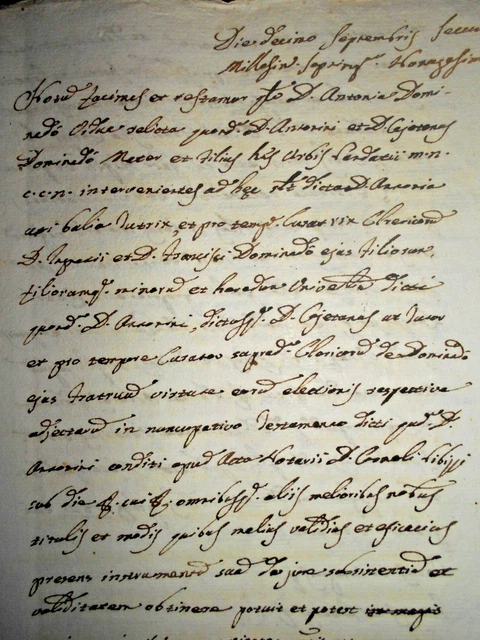 Die decimo Septembris
Millesimo Septing.
Notum facimus et testamur D. Antonia Domi-
nedò Vidua relicta quond. D. Antonini et D. Cajetanus
Dominedò Mater et Filius hujus Urbis m.n.
c.c.n. intervenientes ad hęc dicta D. Antonia
uti balia Tutrix, et pro temp. Curatrix Clericorum
D. Ignatii et D. Francisci Dominedò ejus Filiorum,
Filiorumq. minorum et heredum dicti
quond. D. Antonini, dictusq. D. Cajetanus ut Tutor
et pro tempore Curator supred. Clericorum de Dominedò
ejus Fratrum virtute eorum electionis respective
adjectarum in nuncupativo Testamento dicti qud. D.
Antonini conditi apud Acta Notarii D.
sub die &. cui &. omnibusq. aliis melioribus nobus
titulis et modis quibus melius validius et eficacius
presens instrumentum suam de jure subsistentiam et
validitatem obtinere potuit et potest magis